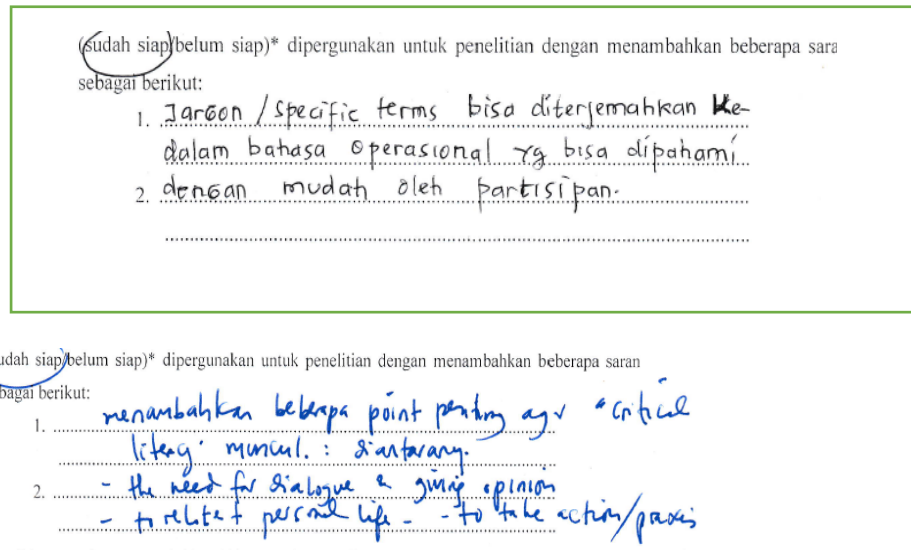 (sudah siap/belum siap)* dipergunakan untuk penelitian dengan menambahkan beberapa sara
sebagai berikut:
1. Jargon / specific terms bisa diterjemahkan ke-
dalam bahasa operasional yg bisa dipahami
2. dengan mudah oleh partisipan.
udah siap/belum siap)* dipergunakan untuk penelitian dengan menambahkan beberapa saran
bagai berikut:
1. menambahkan beberapa point penting agr "critical
muncul. : diantarany.
2. - the need for dialogue & giving opinion
- to relate t personal life - - to take action/praxis